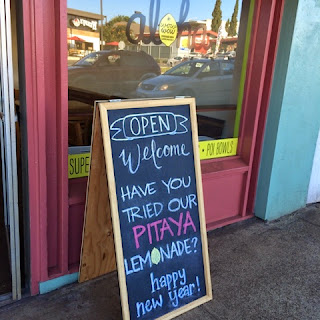 OPEN
Welcome
HAVE YOU
TRIED OUR
PITAYA
LEMONADE?
happy
new year!
SUPE
• POI BOWLS